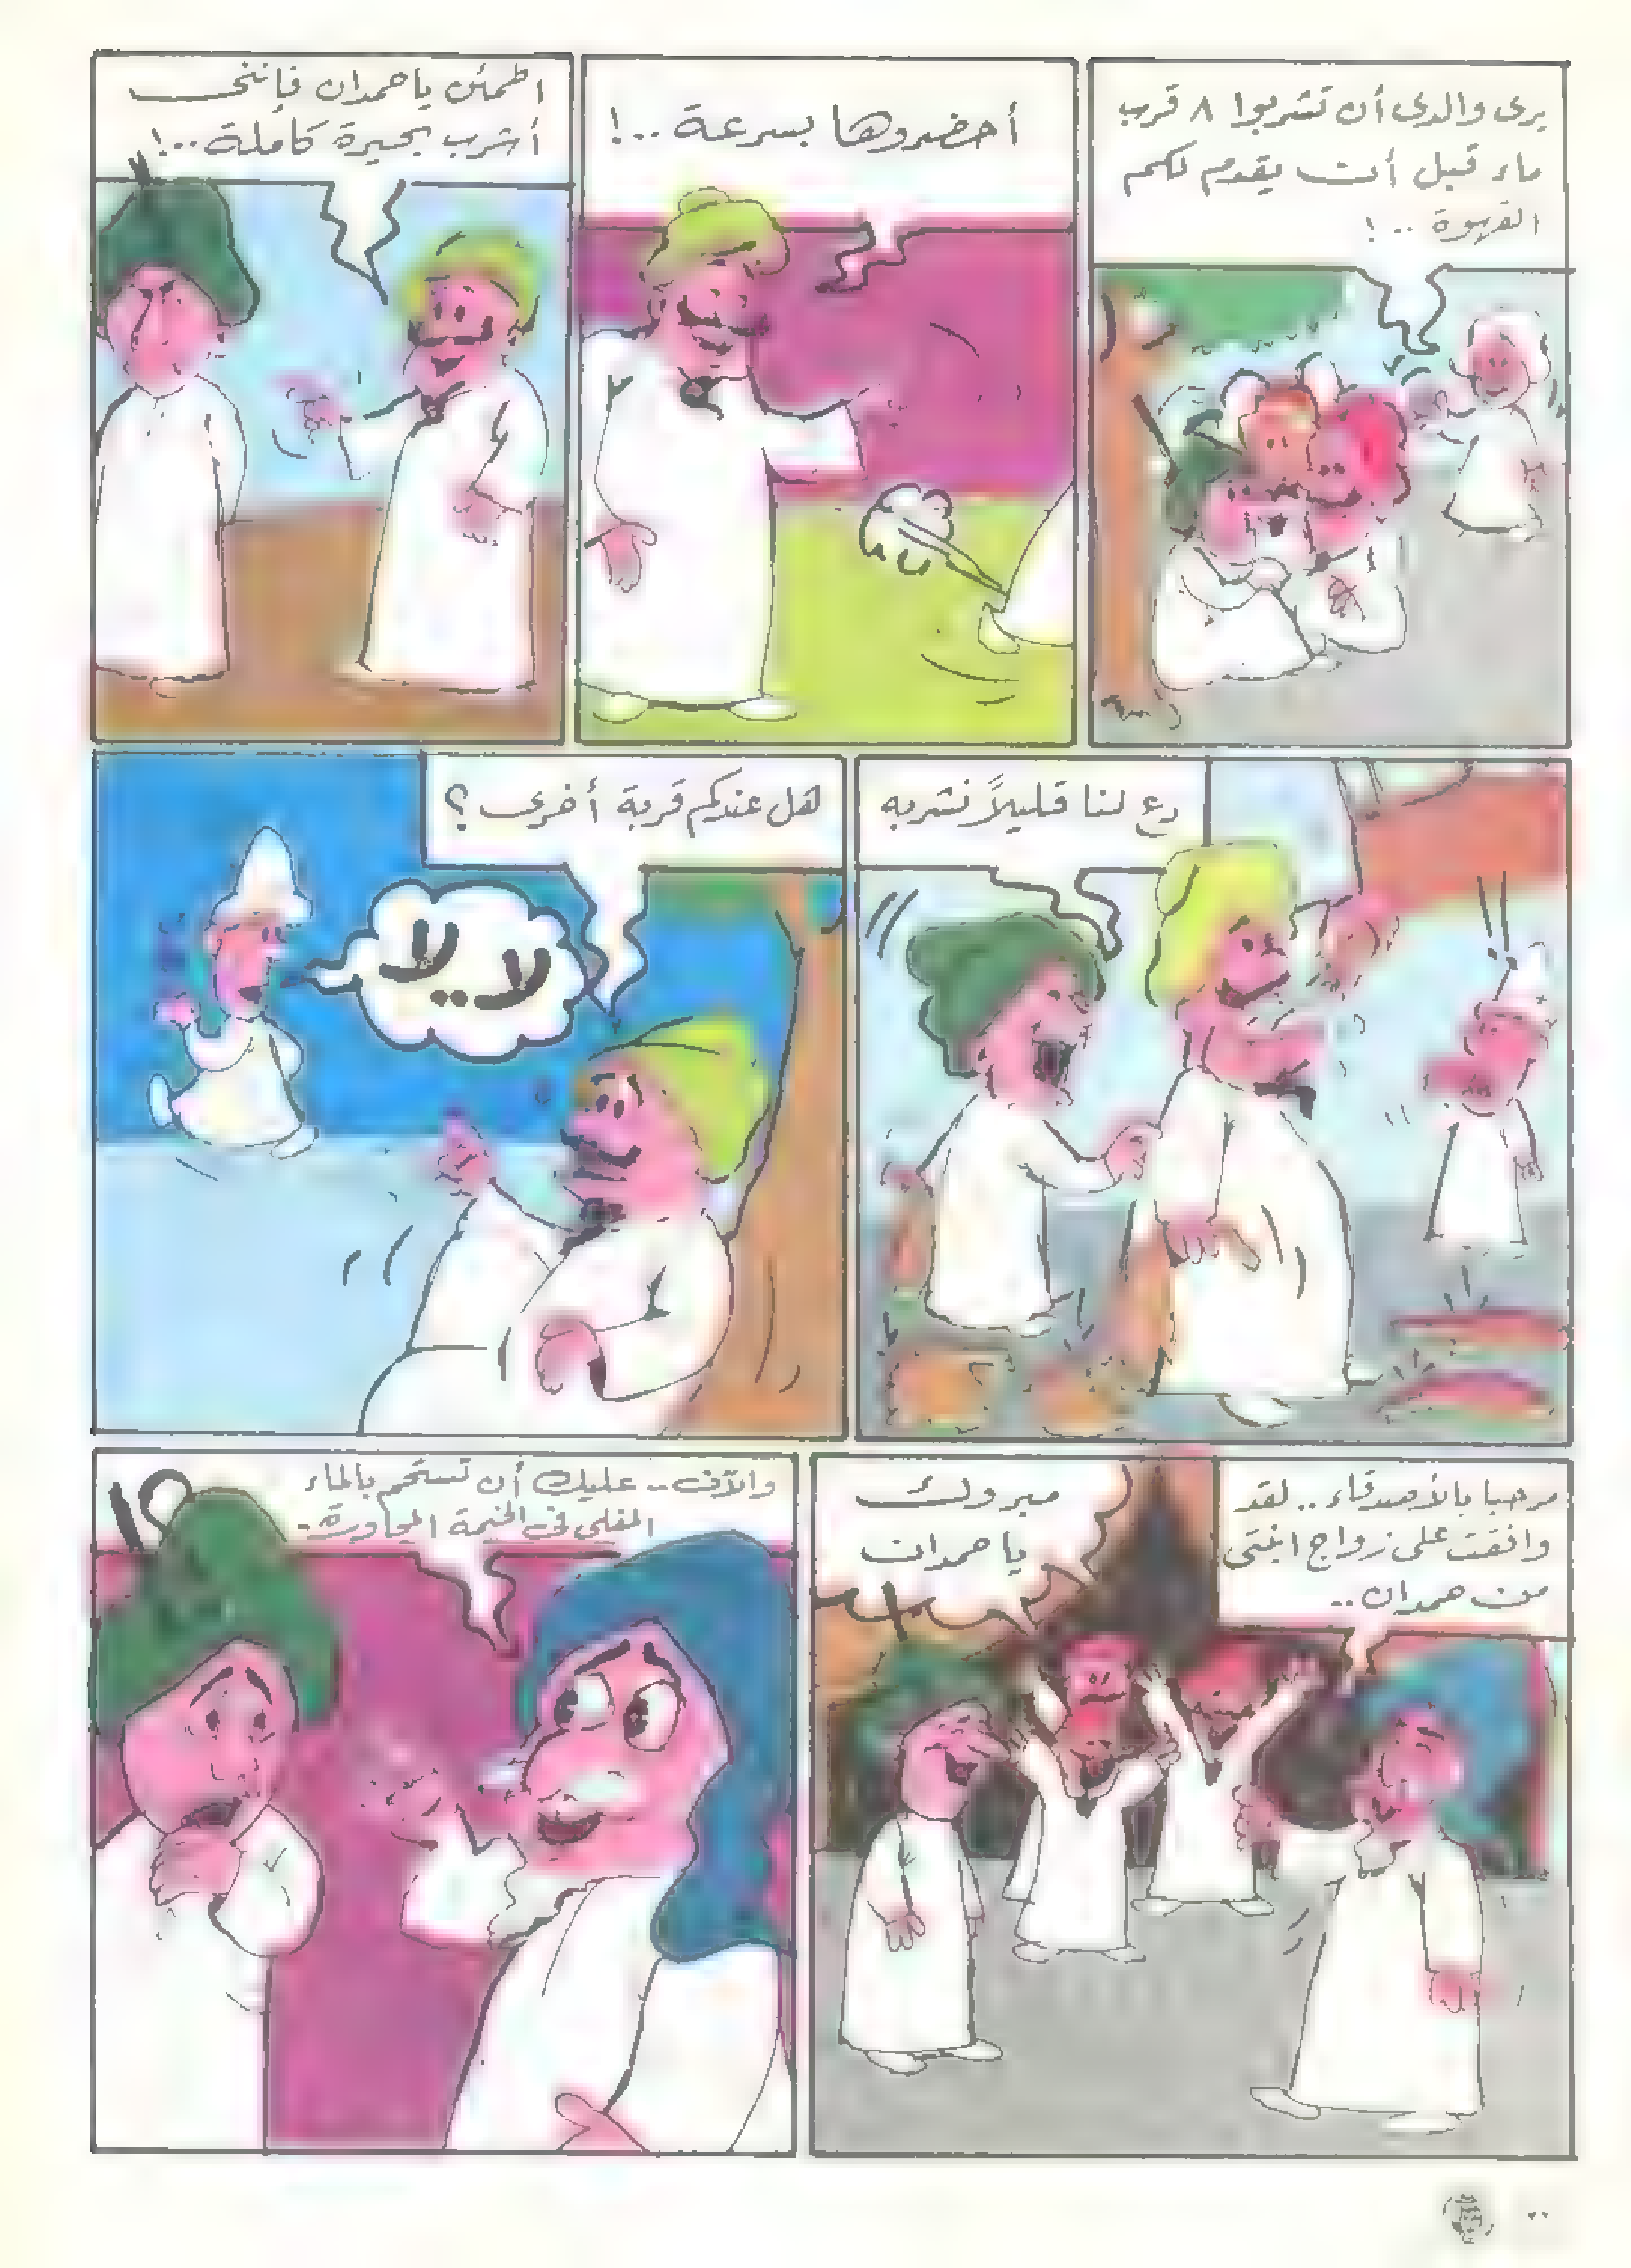 يرى والدى أن تشربوا ٨ قرب
ماء قبل أن يقدم لكم
القهوة .. !
أحضروها بسرعة ..!
اطمئن يا حمدان فإننى
أشرب بحيرة كاملة ..!
دع لنا قليلاً نشربه
هل عندكم قربة أخرى ؟
لا .. لا
مرحبا بالأصدقاء .. لقد
وافقت على زواج ابنتى
من حمدان ..
مبروك
يا حمدان
والآن .. عليك أن تستحم بالماء
المغلى فى الخيمة المجاورة ..
؟!